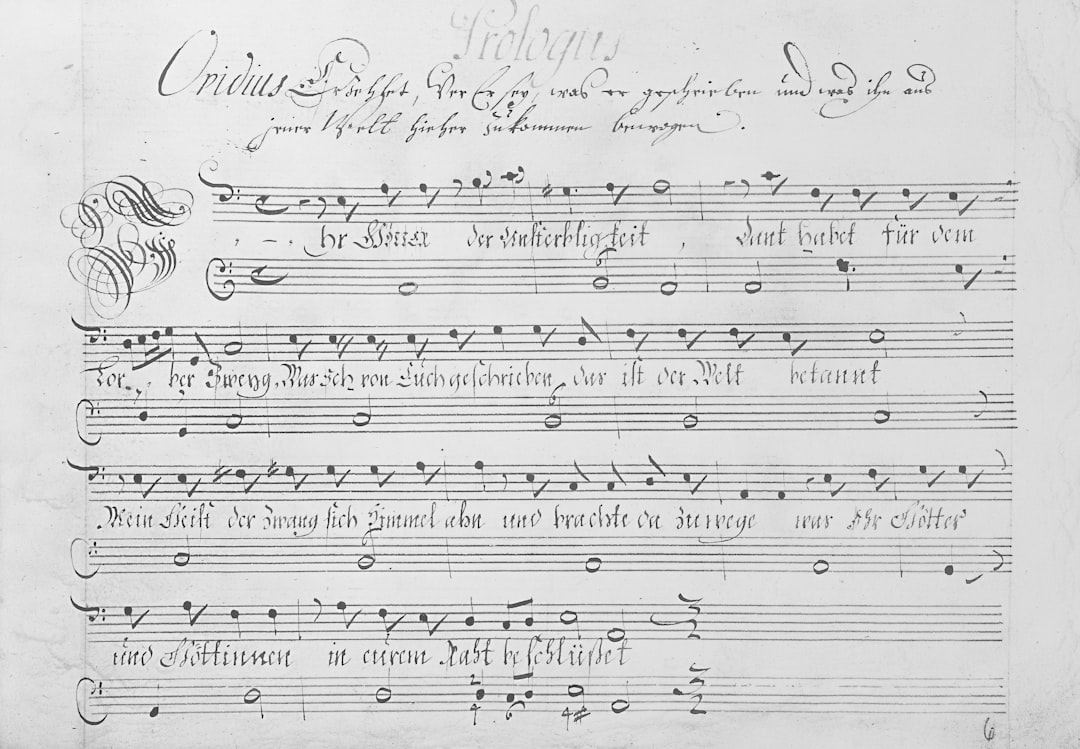 Prologus
Ovidius Erzehlet, Wer Er sey, was er geschrieben und was ihn aus
jener Welt hieher zukommen bewogen.
Ihr Götter der Unsterbligkeit, danckt habet für dem
Lor-ber Zweyg, Was Ich von Euch geschrieben, das ist der Welt bekannt
Mein Geist der zwang sich Himmel ahn und brachte da zuwege was Ihr Götter
und Göttinnen in eurem Raht beschlüßet
6